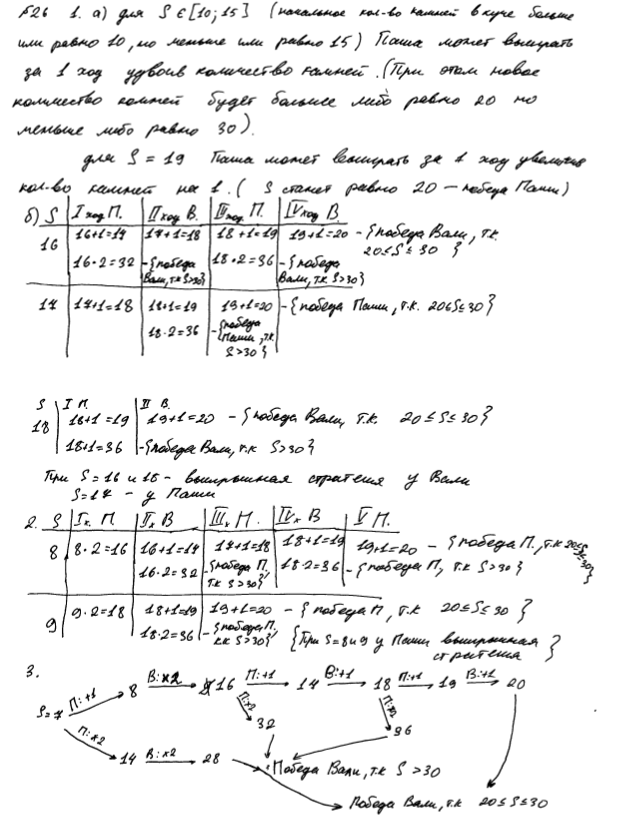 №26 1. а) для S ∈ [10; 15] (начальное кол-во камней в куче больше
или равно 10, но меньше или равно 15) Паша может выиграть
за 1 ход удвоив количество камней. (При этом новое
количество камней будет больше либо равно 20 но
меньше либо равно 30).
для S = 19 Паша может выиграть за 1 ход увеличив
кол-во камней на 1. (S станет равно 20 — победа Паши)
б) S | I ход П. | II ход В. | III ход П. | IV ход В.
16 | 16+1=17 | 17+1=18 | 18+1=19 | 19+1=20 - {победа Вали, т.к. 20≤S≤30}
16·2=32 - {победа Вали, т.к S>30} 18·2=36 - {победа Вали, т.к S>30}
17 | 17+1=18 | 18+1=19 | 19+1=20 - {победа Паши, т.к. 20≤S≤30}
18·2=36 - {победа Паши, т.к. S>30}
S | I П. | II В.
18 | 18+1=19 | 19+1=20 - {победа Вали, т.к. 20≤S≤30}
18+1=36 - {победа Вали, т.к S>30}
При S=16 и 18 - выигрышная стратегия у Вали
S=17 - у Паши
2. S | Iх. П | Iх В | IIIх П. | IVх В | V П.
8 | 8·2=16 | 16+1=17 | 17+1=18 | 18+1=19 | 19+1=20 - {победа П., т.к 20≤S≤30}
16·2=32 - {победа П, т.к S>30} 18·2=36 - {победа П, т.к S>30}
9 | 9·2=18 | 18+1=19 | 19+1=20 - {победа П, т.к 20≤S≤30}
18·2=36 - {победа П, т.к S>30} {При S=8 и 9 у Паши выигрышная
стратегия}
3.
S=7 П:+1 8 В:x2 16 П:+1 17 В:+1 18 П:+1 19 В:+1 20
П:x2 32 П:x2 36
П:x2 14 В:x2 28 Победа Вали, т.к S >30
Победа Вали, т.к 20≤S≤30